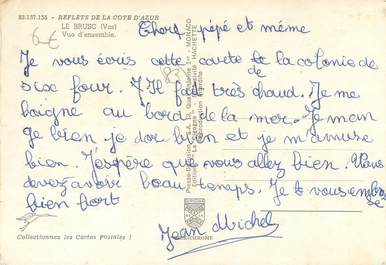 83.137.155 - REFLETS DE LA COTE D'AZUR
LE BRUSC (Var)
Vue d'ensemble.
6€
83
Chers pépé et mémé
Je vous écris cette carte de la colonie de
six four. Il fait très chaud. Je me
baigne au bord de la mer. Je man
ge bien je dor bien et je m'amuse
bien. J'espère que vous allez bien. Vous
devez avoir beau temps. Je vous embrasse
bien fort
Jean Michel
Collectionnez les Cartes Postales !
MONACO
HACHETTE